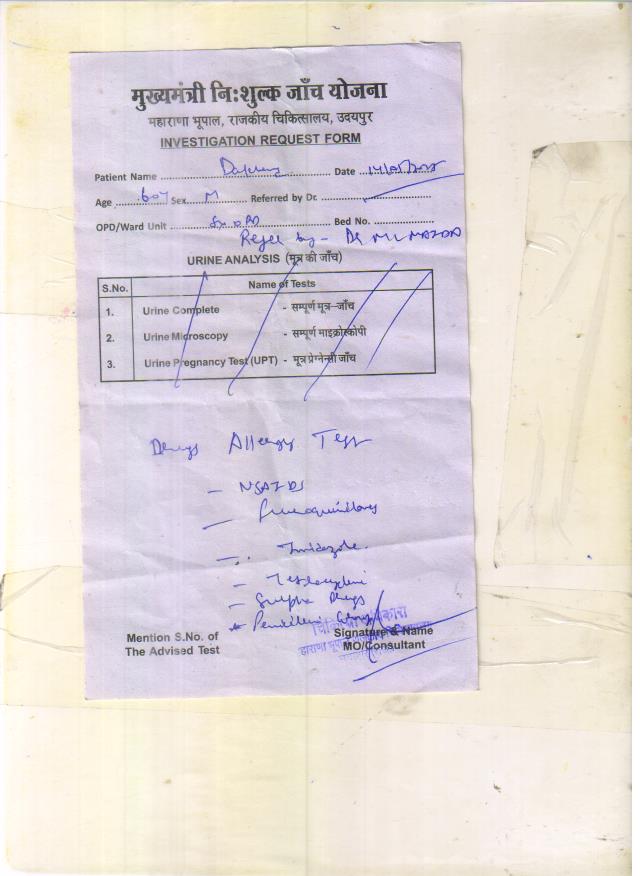 मुख्यमंत्री निःशुल्क जाँच योजना
महाराणा भूपाल, राजकीय चिकित्सालय, उदयपुर
INVESTIGATION REQUEST FORM
Patient Name Date
Age 60y Sex M Referred by Dr.
OPD/Ward Unit Bed No.
by - Dr
URINE ANALYSIS (मूत्र की जाँच)
S.No. Name of Tests
1. Urine Complete - सम्पूर्ण मूत्र–जाँच
2. Urine Microscopy - सम्पूर्ण माइक्रोस्कोपी
3. Urine Pregnancy Test (UPT) - मूत्र प्रेग्नेन्सी जाँच
Drugs Allergy Test
- NSAIDS
-
- Imidazole.
-
- Sulpha Drugs
Mention S.No. of
The Advised Test
Signature & Name
MO/Consultant